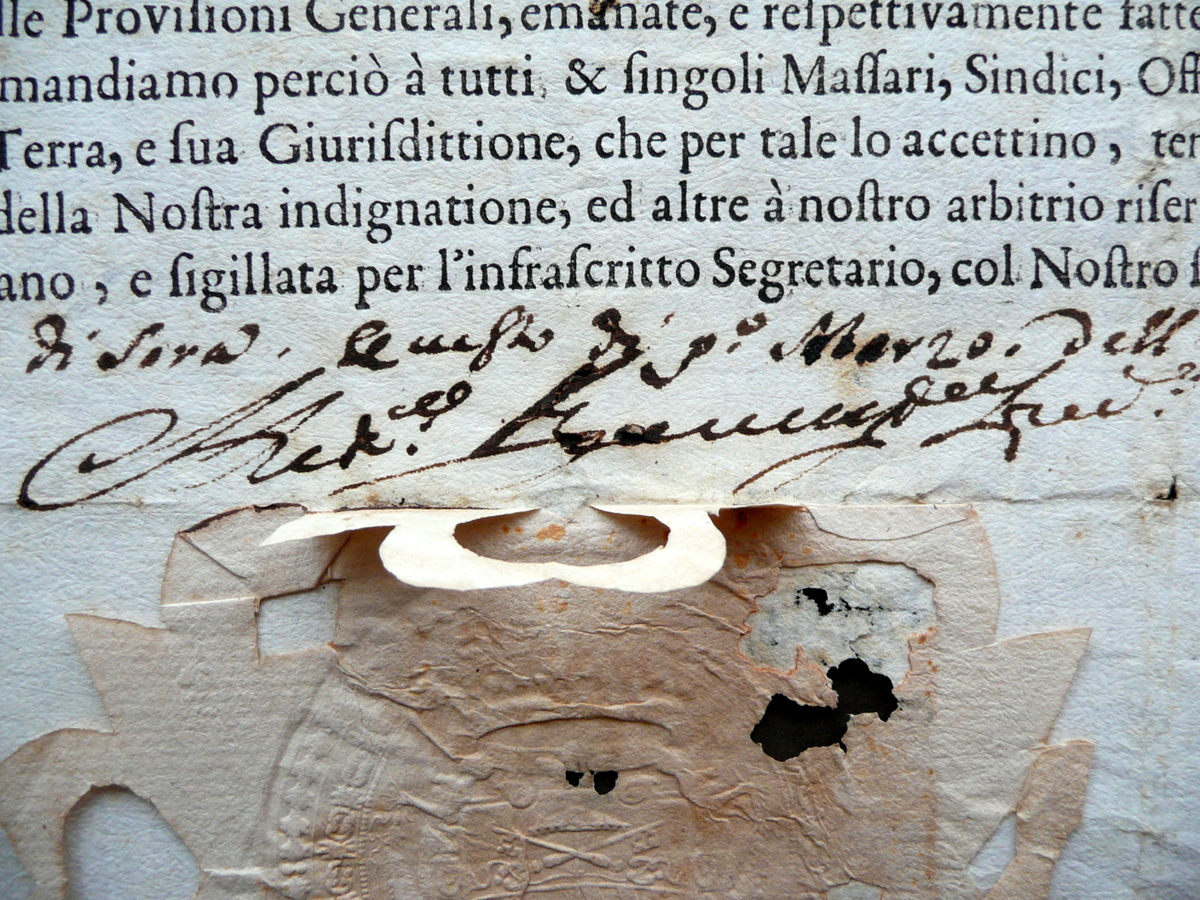 lle Proviſioni Generali, emanate, e reſpettivamente fatte
mandiamo perciò à tutti, & ſingoli Maſſari, Sindici, Off
Terra, e ſua Giuriſdittione, che per tale lo accettino, ter
della Noſtra indignatione, ed altre à noſtro arbitrio riſer
ano, e ſigillata per l'infraſcritto Segretario, col Noſtro ſ
di p.º Marzo. Dell